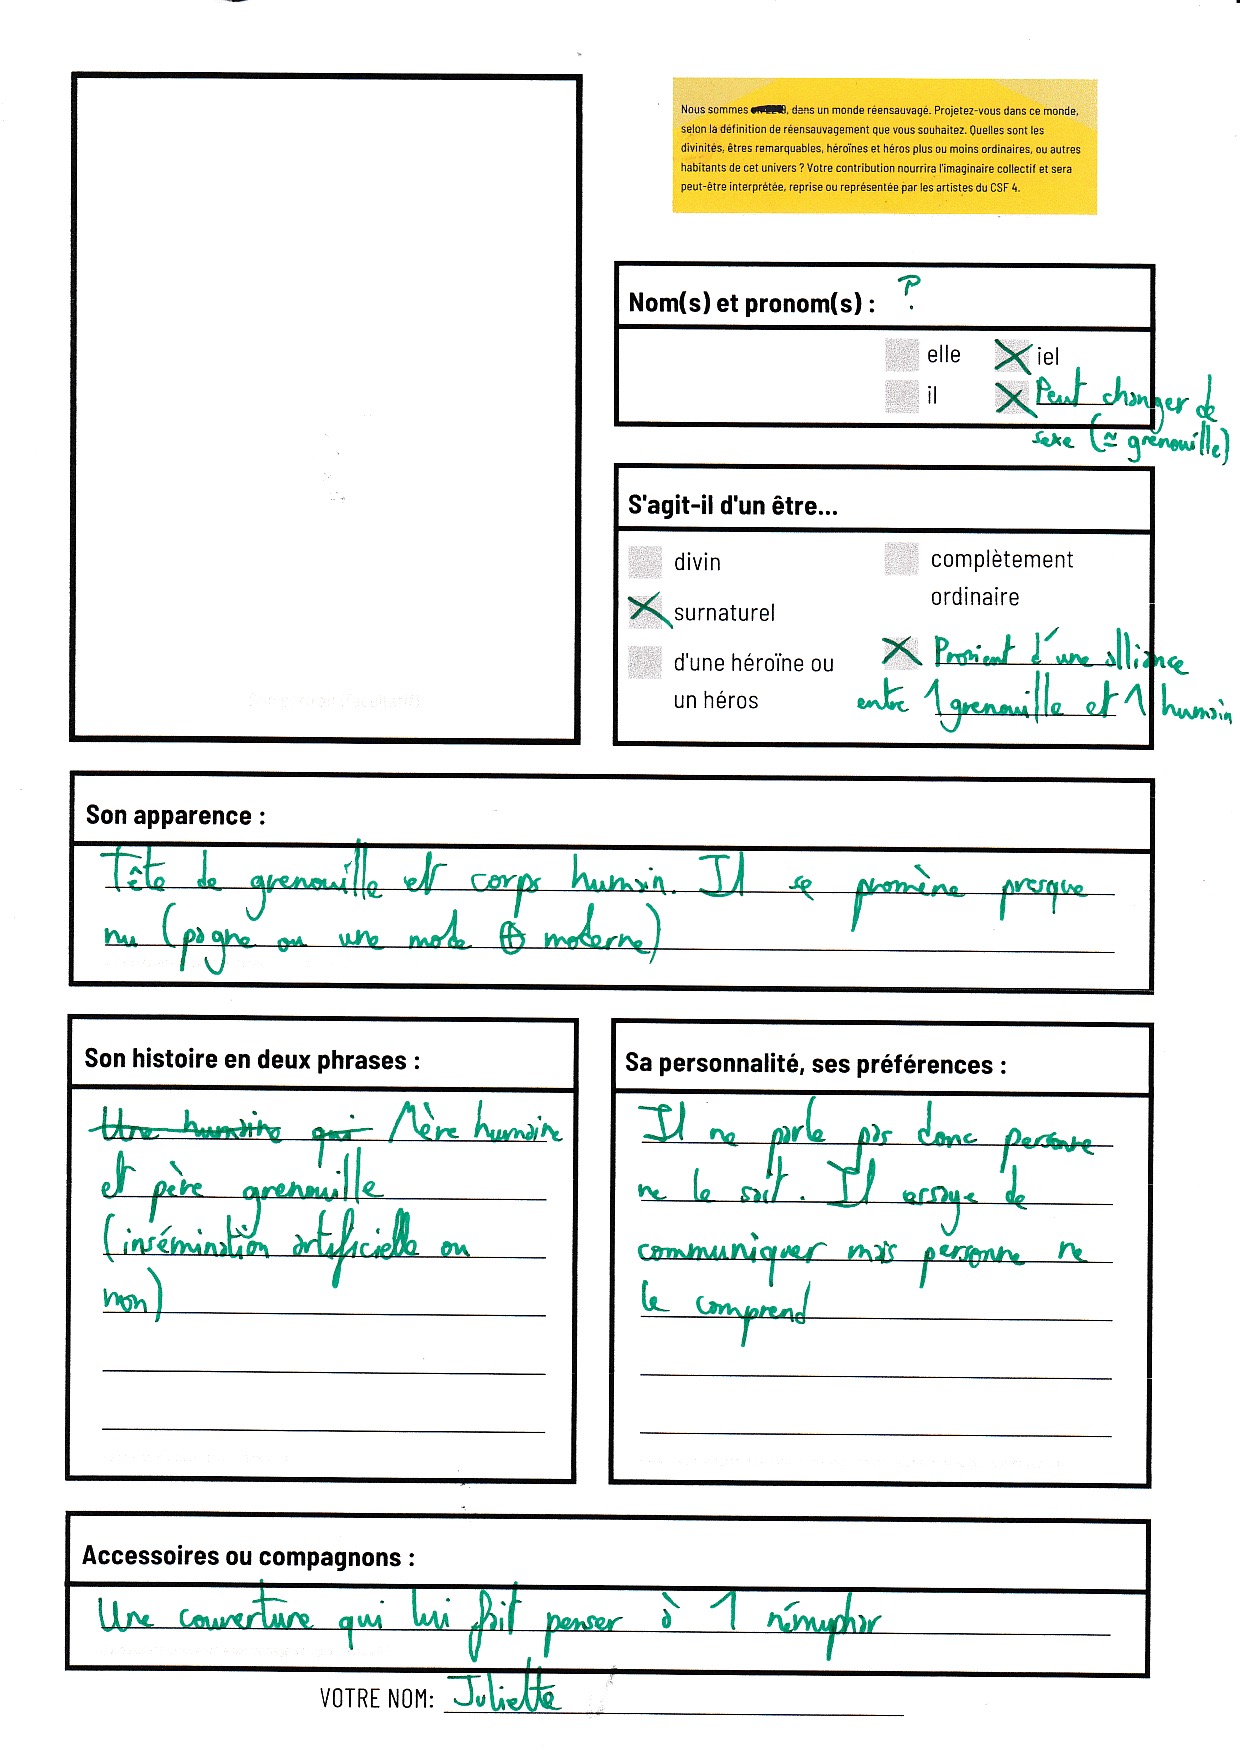 Nous sommes, dans un monde réensauvagé. Projetez-vous dans ce monde,
selon la définition de réensauvagement que vous souhaitez. Quelles sont les
divinités, êtres remarquables, héroïnes et héros plus ou moins ordinaires, ou autres
habitants de cet univers ? Votre contribution nourrira l'imaginaire collectif et sera
peut-être interprétée, reprise ou représentée par les artistes du CSF 4.
Nom(s) et pronom(s) : ?
elle
iel
il
Peut changer de
sexe (≈ grenouille)
S'agit-il d'un être...
divin
complètement
ordinaire
surnaturel
d'une héroïne ou
un héros
Provient d'une alliance
entre 1 grenouille et 1 humain
Son apparence :
Tête de grenouille et corps humain. Il se promène presque
nu (pagne ou une mode ⊕ moderne)
Son histoire en deux phrases :
Une humaine qui Mère humaine
et père grenouille
(insémination artificielle ou
non)
Sa personnalité, ses préférences :
Il ne parle pas donc personne
ne le sait. Il essaye de
communiquer mais personne ne
le comprend
Accessoires ou compagnons :
Une couverture qui lui fait penser à 1 nénuphar
VOTRE NOM: Juliette